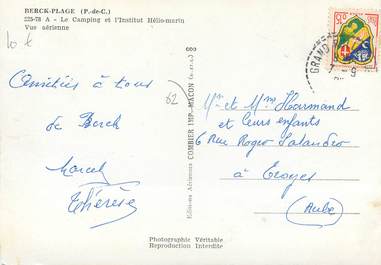 BERCK-PLAGE (P.-de-C.)
225-78 A - Le Camping et l'Institut Hélio-marin
Vue aérienne
10 €
Amitiés à tous
de Berck
Marcel
Thérèse
62
Editions Aériennes COMBIER IMP. MACON (S.-et-L.)
GRAND
7 - 9
Mr et Mme Harmand
et leurs enfants
6 Rue Roger Salandro
à Troyes
(Aube)
Photographie Véritable
Reproduction Interdite